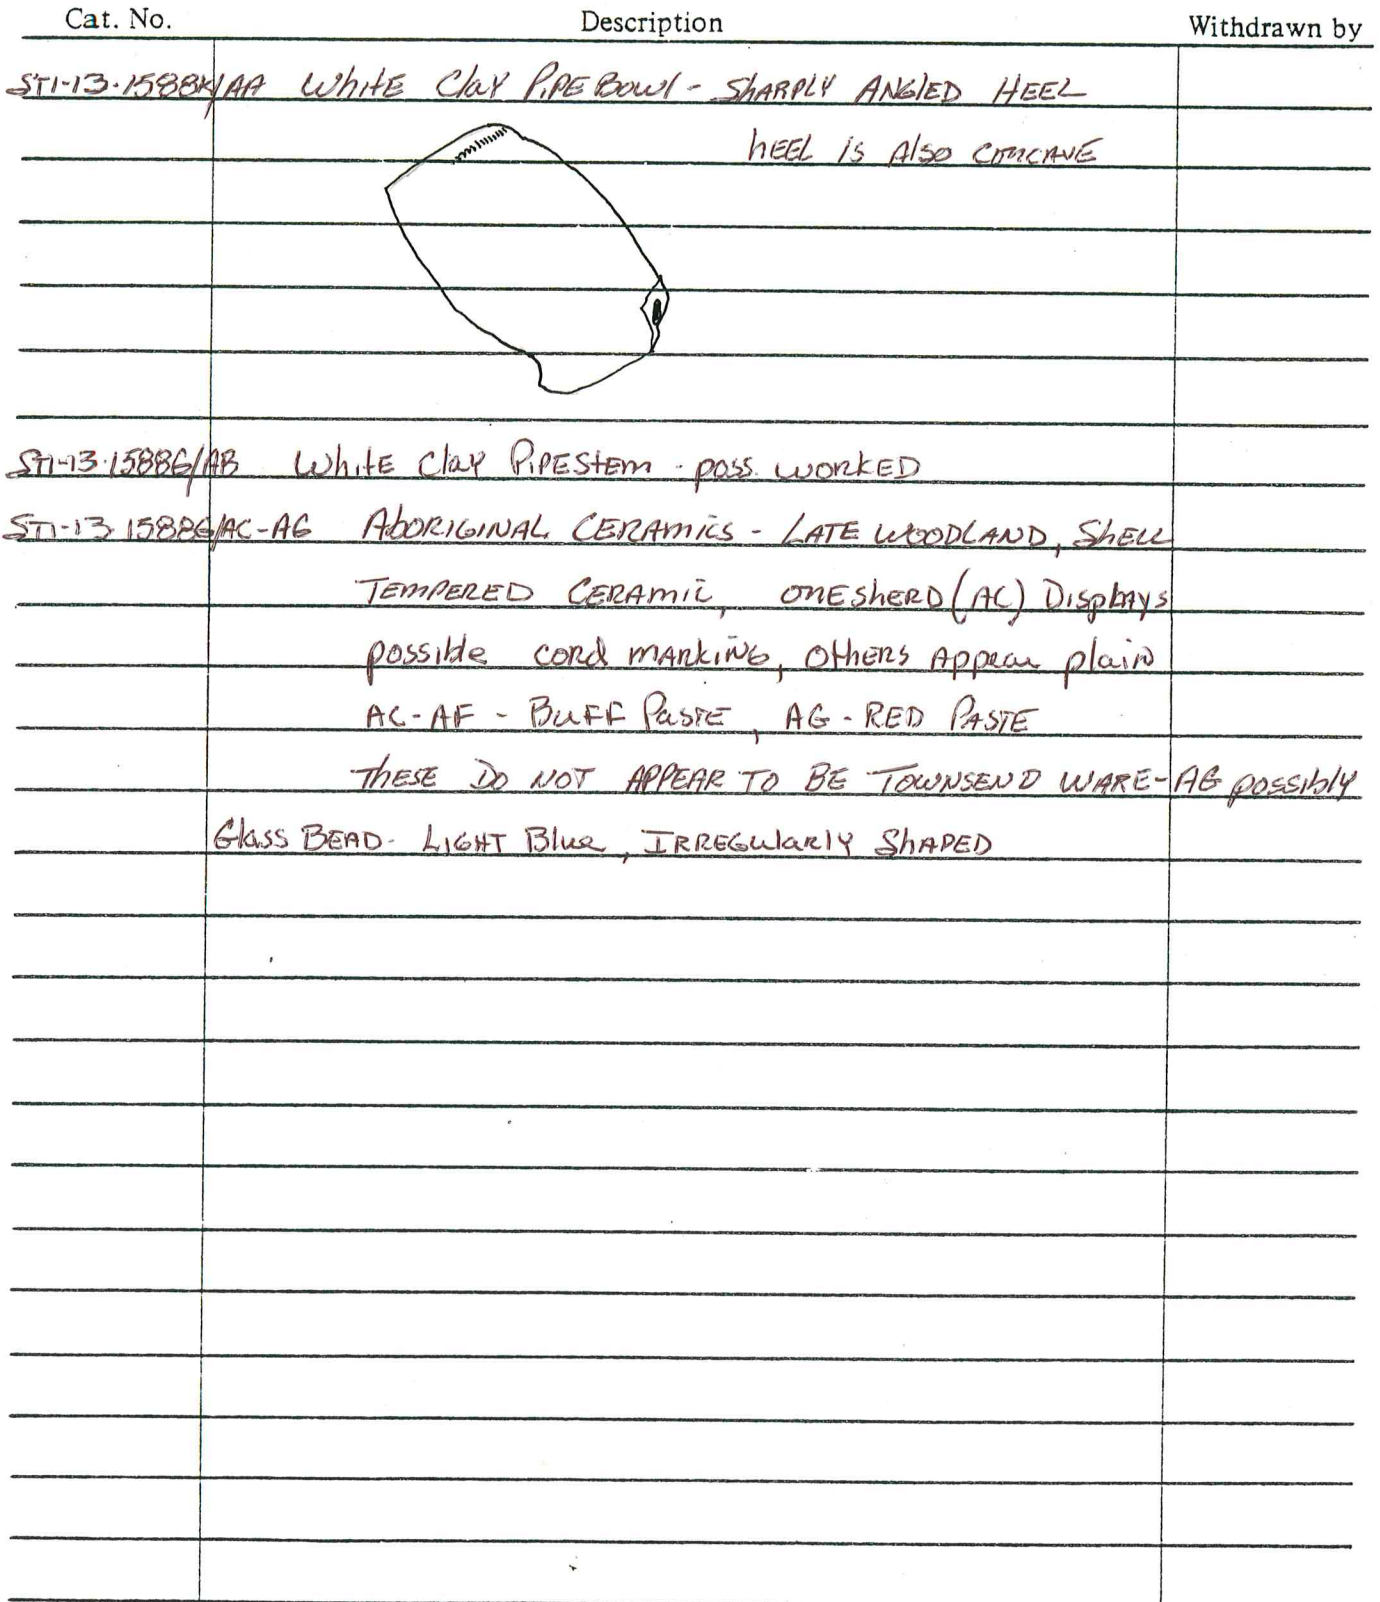 Cat. No. Description Withdrawn by
ST1-13-1588K/AA White Clay PIPE Bowl - SHARPLY ANGLED HEEL
hEEL is Also CONCAVE
ST1-13-1588G/AB White Clay PIPEStem - poss. WORKED
ST1-13-1588G/AC-AG ABORIGINAL CERAMICS - LATE WOODLAND, SHELL
TEMPERED CERAMIC, ONE SHERD (AC) Displays
possible cord MARKING, OTHERS Appear plain
AC-AF - BUFF PASTE, AG - RED PASTE
THESE DO NOT APPEAR TO BE TOWNSEND WARE - AG possibly
Glass BEAD - LIGHT Blue, IRREGULARLY SHAPED